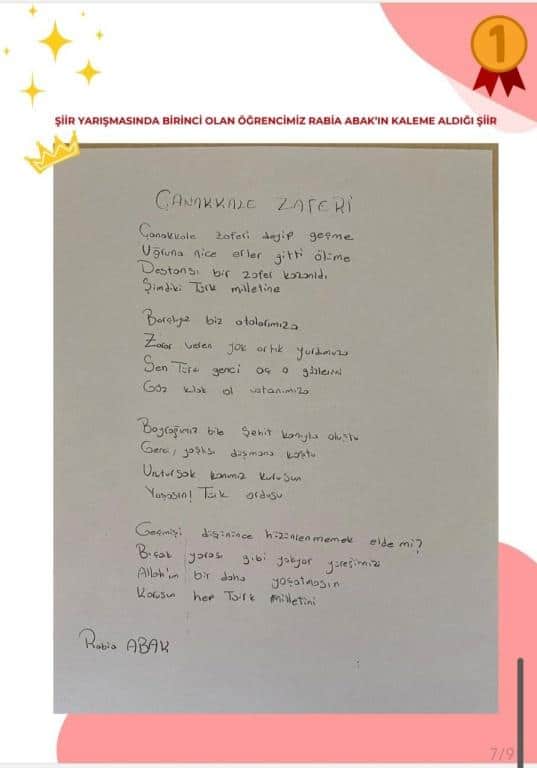 1
ŞİİR YARIŞMASINDA BİRİNCİ OLAN ÖĞRENCİMİZ RABİA ABAK'IN KALEME ALDIĞI ŞİİR
ÇANAKKALE ZAFERİ
Çanakkale zaferi deyip geçme
Uğruna nice erler gitti ölüme
Destansı bir zafer kazanıldı
Şimdiki Türk milletine
Borçluyuz biz atalarımıza
Zarar veren yok artık yurdumuza
Sen Türk genci aç o gözlerini
Göz kulak ol vatanımıza
Bayrağımız bile şehit kanıyla oluştu
Genci, yaşlısı düşmana koştu
Unutursak kanımız kurusun
Yaşasın! Türk ordusu
Geçmişi düşününce hüzünlenmemek elde mi?
Bıçak yarası gibi yakıyor yüreğimizi
Allah'ım bir daha yaşatmasın
Korusun hep Türk milletini
Rabia ABAK
7/9